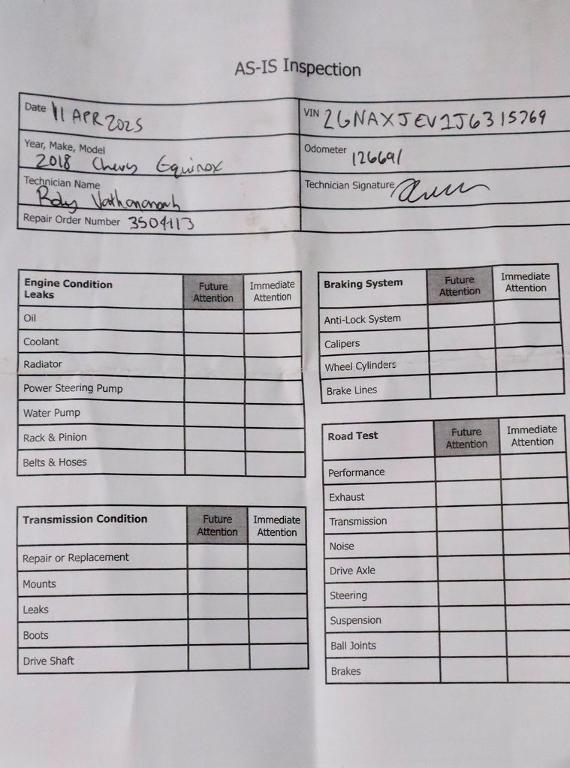 AS-IS Inspection
Date 11 APR 2025
VIN 2GNAXJEV1J6315769
Year, Make, Model
2018 Chevy Equinox
Odometer 126691
Technician Name
Technician Signature
Repair Order Number 3504113
Engine Condition
Leaks
Future
Attention
Immediate
Attention
Oil
Coolant
Radiator
Power Steering Pump
Water Pump
Rack & Pinion
Belts & Hoses
Braking System
Future
Attention
Immediate
Attention
Anti-Lock System
Calipers
Wheel Cylinders
Brake Lines
Transmission Condition
Future
Attention
Immediate
Attention
Repair or Replacement
Mounts
Leaks
Boots
Drive Shaft
Road Test
Future
Attention
Immediate
Attention
Performance
Exhaust
Transmission
Noise
Drive Axle
Steering
Suspension
Ball Joints
Brakes